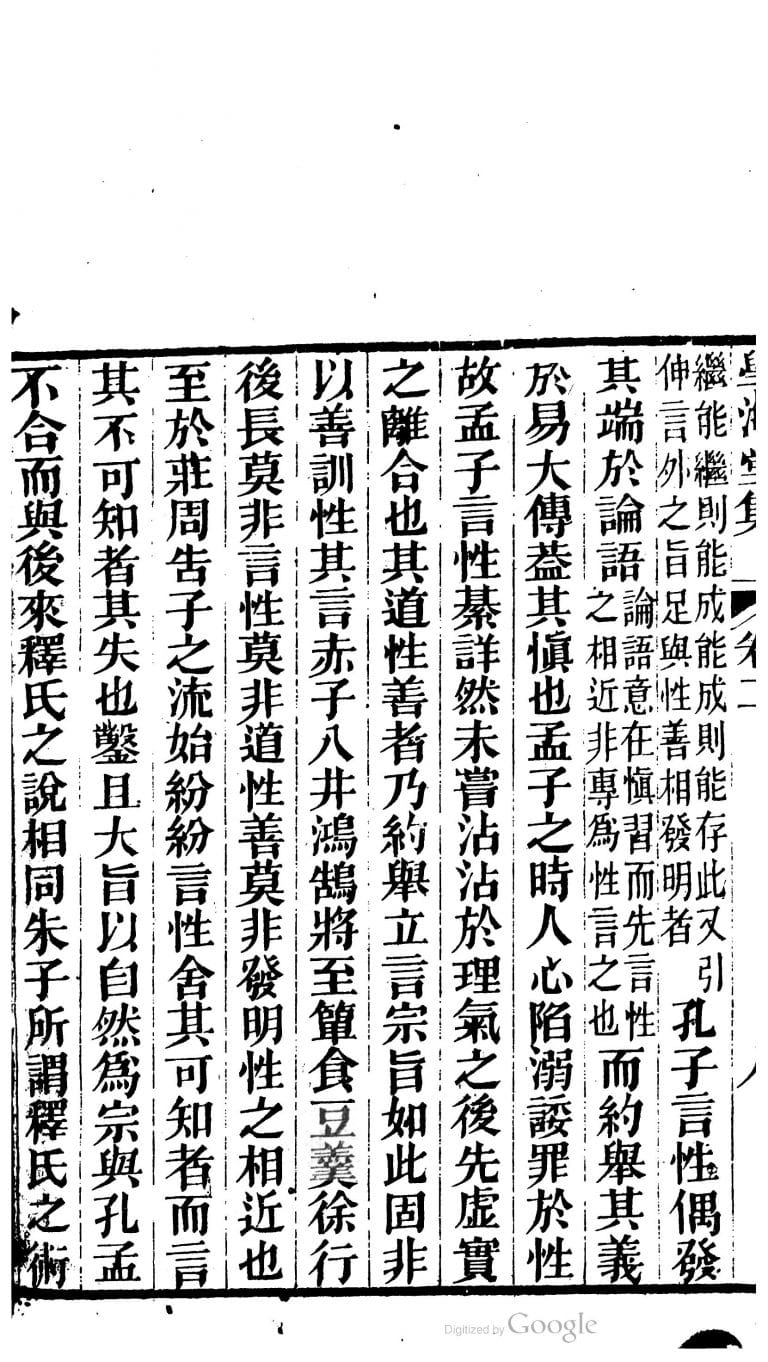 學海堂集 卷二 八
繼能繼則能成能成則能存此又引
伸言外之旨足與性善相發明者
孔子言性偶發
其端於論語
論語意在愼習而先言性
之相近非專爲性言之也
而約舉其義
於易大傳葢其愼也孟子之時人心陷溺諉罪於性
故孟子言性綦詳然未嘗沾沾於理氣之後先虛實
之離合也其道性善者乃約舉立言宗旨如此固非
以善訓性其言赤子入井鴻鵠將至簞食豆羹徐行
後長莫非言性莫非道性善莫非發明性之相近也
至於莊周告子之流始紛紛言性舍其可知者而言
其不可知者其失也鑿且大旨以自然爲宗與孔孟
不合而與後來釋氏之說相同朱子所謂釋氏之術
Digitized by Google